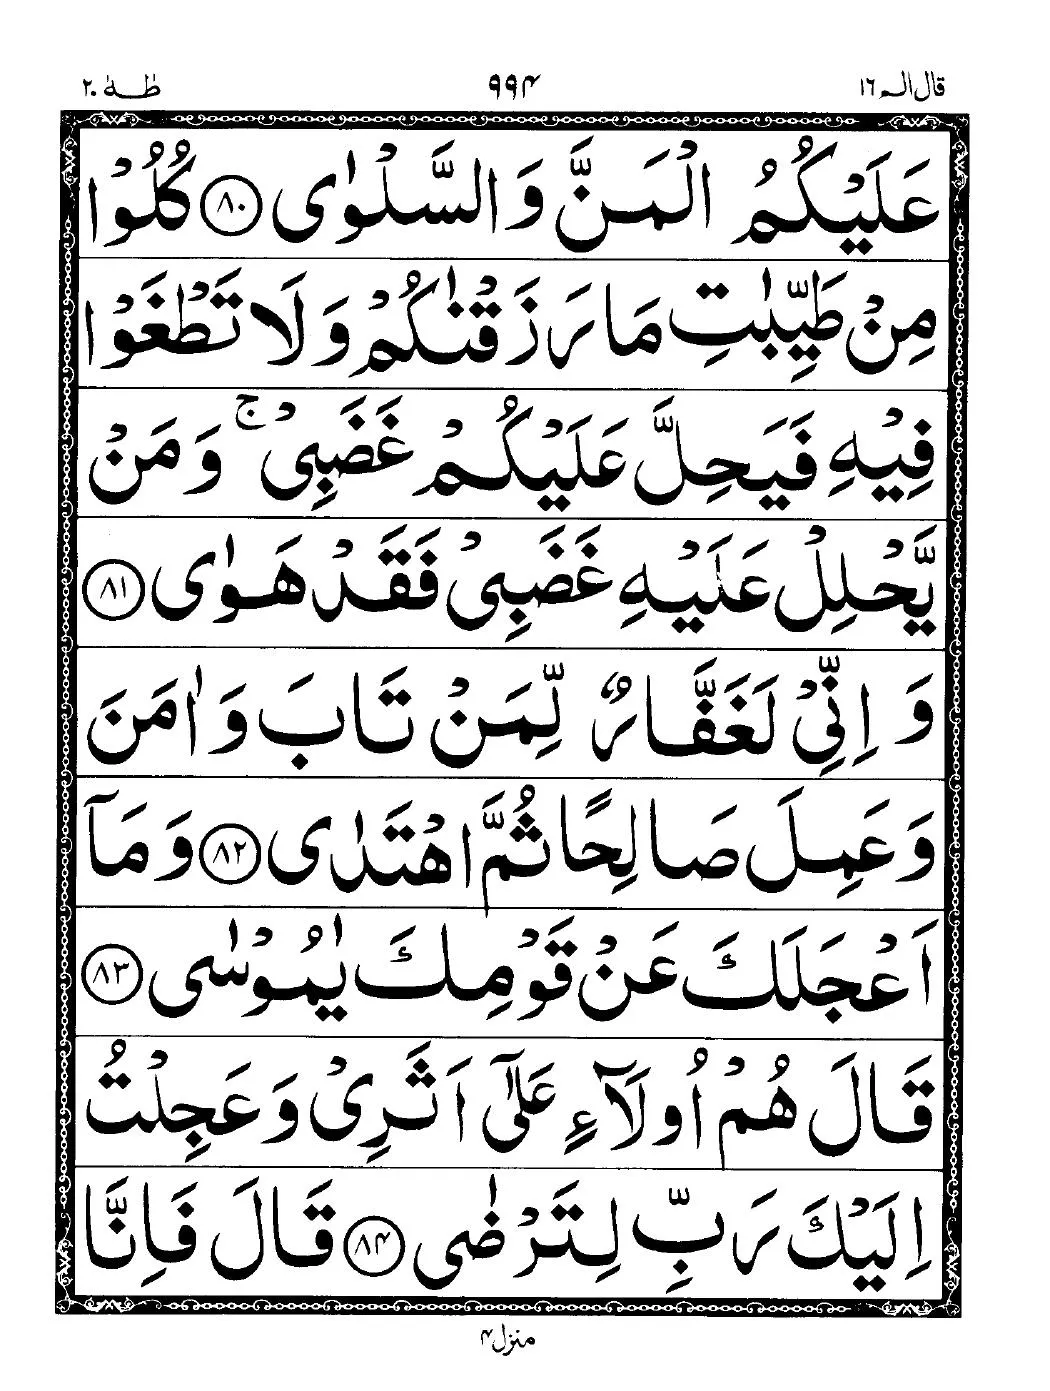 قال الم ١٦ ۹۹۴ طٰهٰ ٢٠
عَلَيْكُمُ الْمَنَّ وَالسَّلْوٰى ﴿۸۰﴾ كُلُوْا
مِنْ طَيِّبٰتِ مَا رَزَقْنٰكُمْ وَلَا تَطْغَوْا
فِيْهِ فَيَحِلَّ عَلَيْكُمْ غَضَبِيْ ۚ وَمَنْ
يَّحْلِلْ عَلَيْهِ غَضَبِيْ فَقَدْ هَوٰى ﴿۸۱﴾
وَ اِنِّيْ لَغَفَّارٌ لِّمَنْ تَابَ وَاٰمَنَ
وَعَمِلَ صَالِحًا ثُمَّ اهْتَدٰى ﴿۸۲﴾ وَمَآ
اَعْجَلَكَ عَنْ قَوْمِكَ يٰمُوْسٰى ﴿۸۳﴾
قَالَ هُمْ اُولَآءِ عَلٰٓى اَثَرِيْ وَعَجِلْتُ
اِلَيْكَ رَبِّ لِتَرْضٰى ﴿۸۴﴾ قَالَ فَاِنَّا
منزل ۴